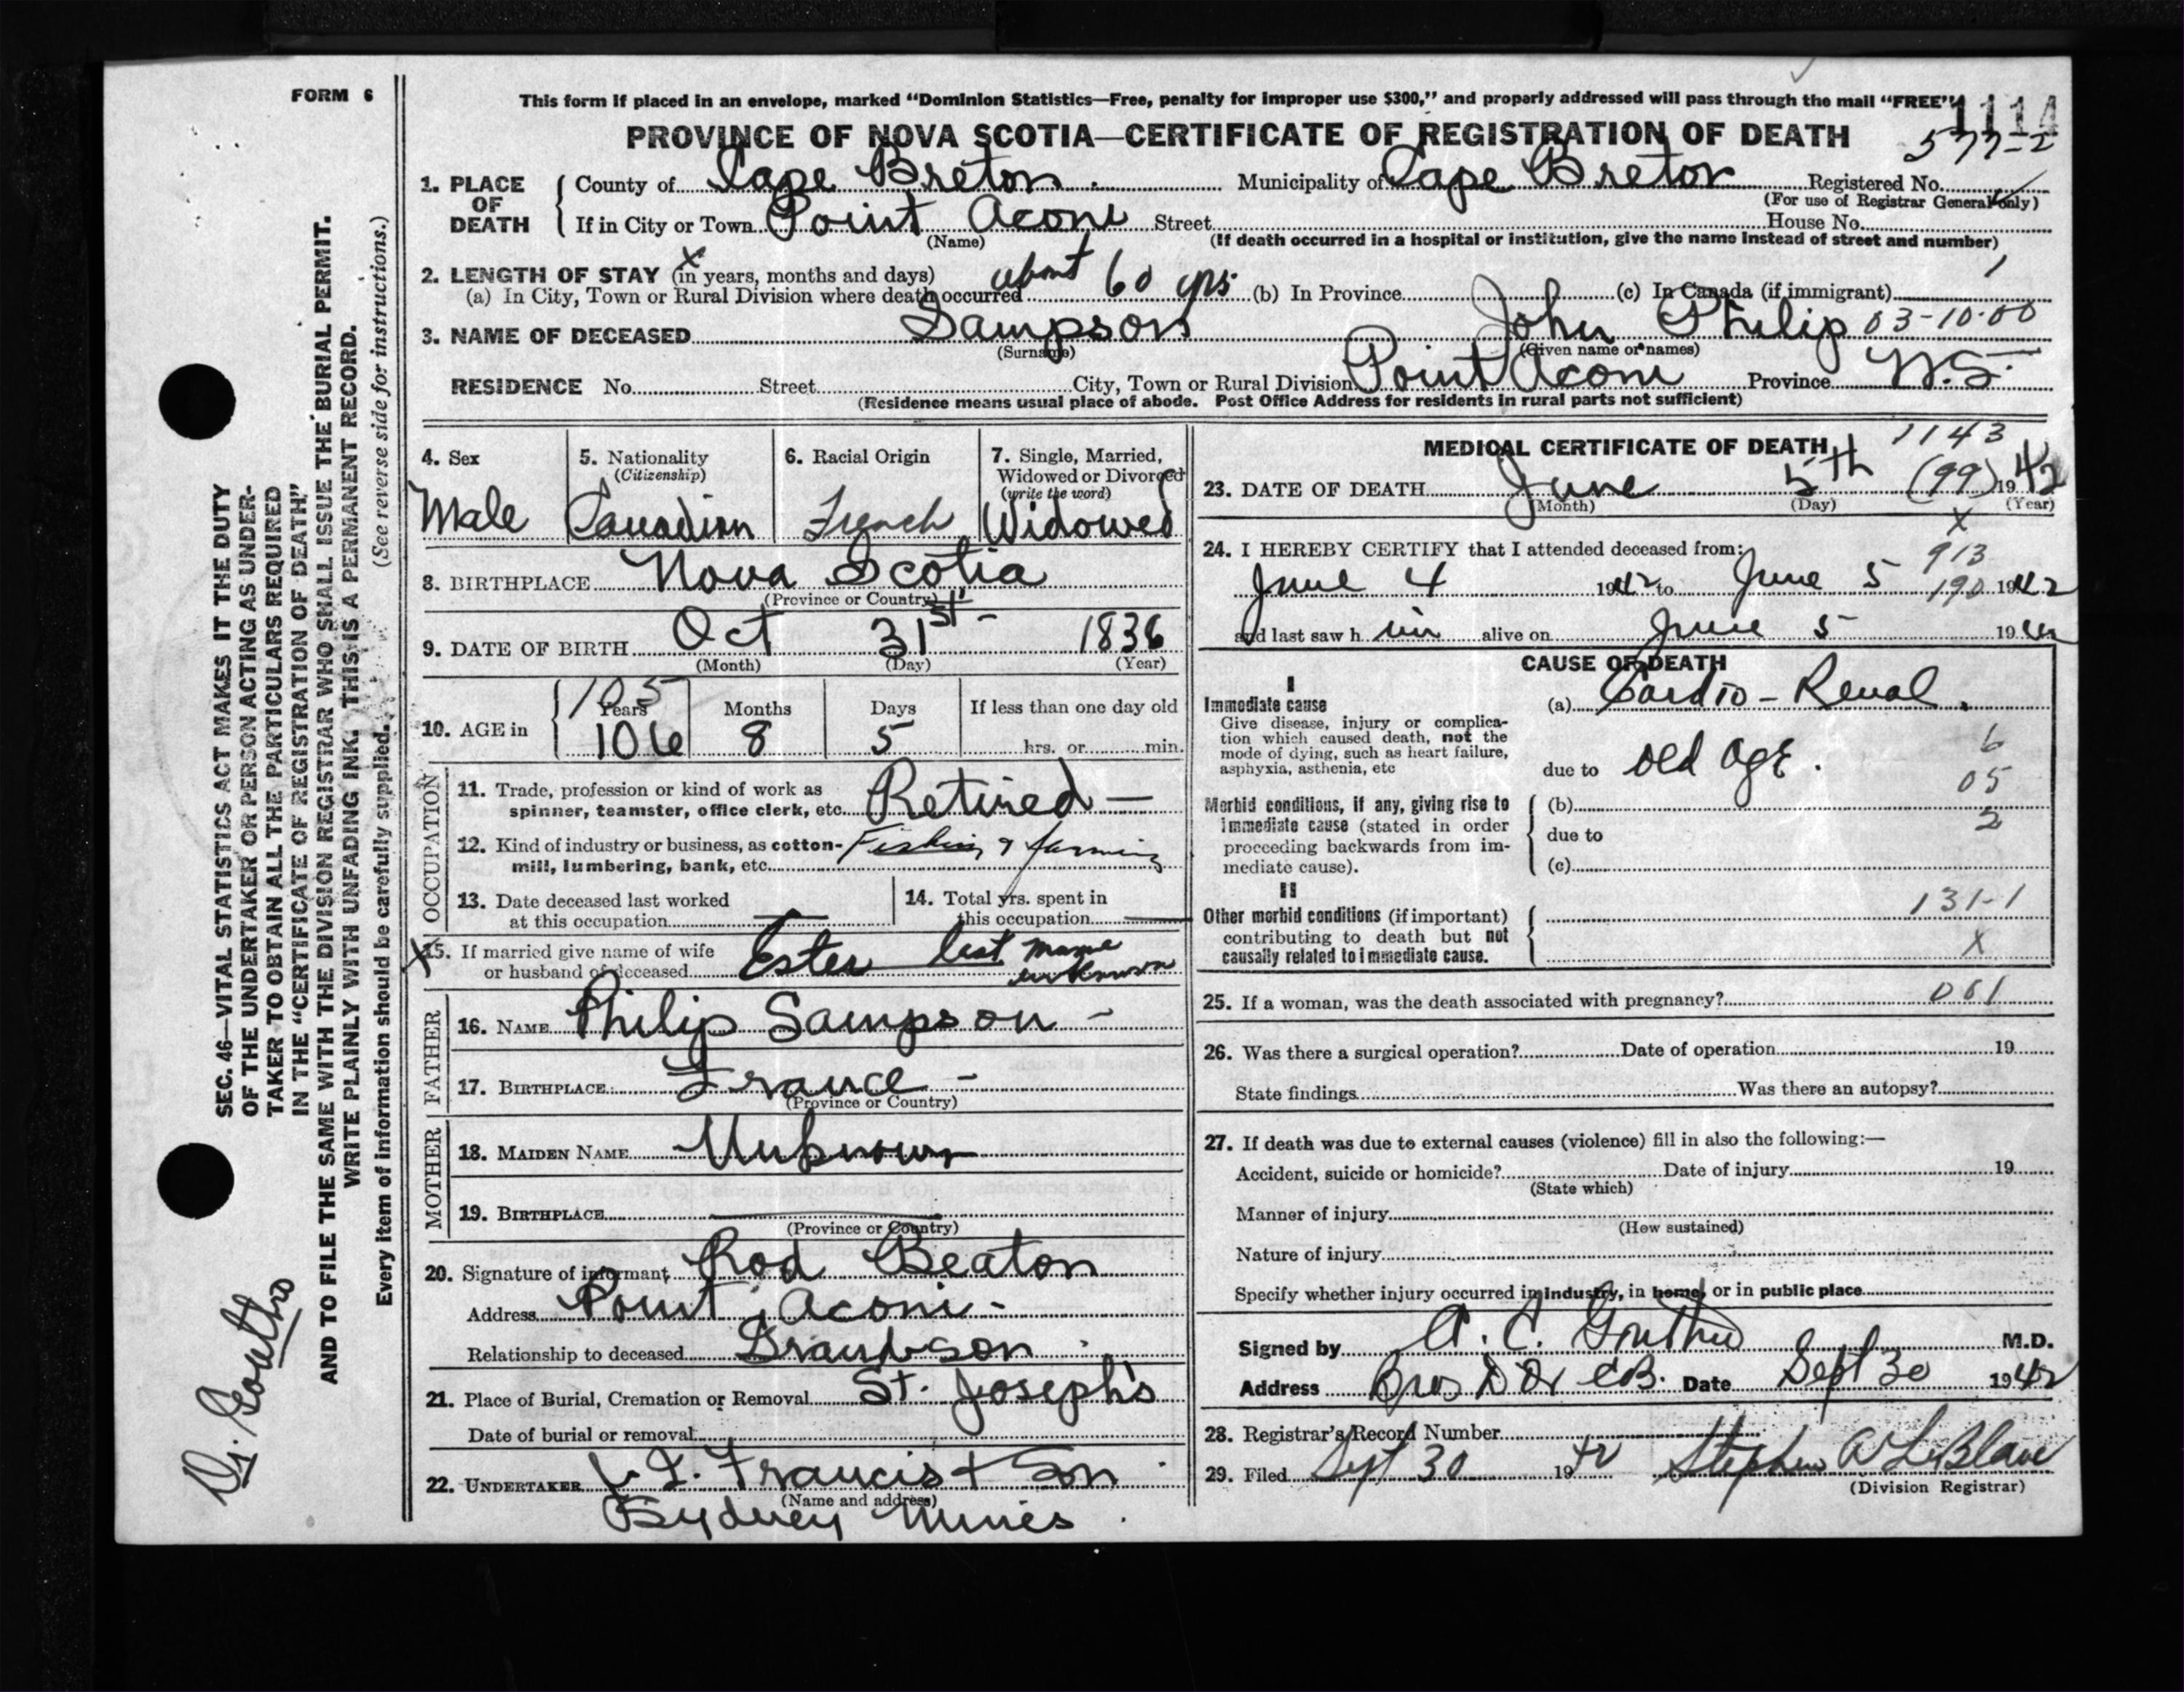 FORM 6
This form if placed in an envelope, marked "Dominion Statistics—Free, penalty for improper use $300," and properly addressed will pass through the mail "FREE"
1114
PROVINCE OF NOVA SCOTIA—CERTIFICATE OF REGISTRATION OF DEATH
577-2
1. PLACE OF DEATH { County of Cape Breton Municipality of Cape Breton Registered No.
(For use of Registrar General only)
If in City or Town Point Aconi Street House No.
(Name) (If death occurred in a hospital or institution, give the name instead of street and number)
2. LENGTH OF STAY (in years, months and days) X
(a) In City, Town or Rural Division where death occurred about 60 yrs. (b) In Province (c) In Canada (if immigrant) 1
3. NAME OF DECEASED Sampson John Philip 03-10-00
(Surname) (Given name or names)
RESIDENCE No. Street City, Town or Rural Division Point Aconi Province N.S.
(Residence means usual place of abode. Post Office Address for residents in rural parts not sufficient)
4. Sex
Male
5. Nationality
(Citizenship)
Canadian
6. Racial Origin
French
7. Single, Married,
Widowed or Divorced
(write the word)
Widowed
8. BIRTHPLACE Nova Scotia
(Province or Country)
9. DATE OF BIRTH Oct 31st - 1836
(Month) (Day) (Year)
10. AGE in { Years Months Days If less than one day old
105
106 8 5 hrs. or min.
OCCUPATION
11. Trade, profession or kind of work as
spinner, teamster, office clerk, etc. Retired —
12. Kind of industry or business, as cotton-
mill, lumbering, bank, etc. Fishing & farming
13. Date deceased last worked
at this occupation —
14. Total yrs. spent in
this occupation —
X 15. If married give name of wife
or husband of deceased Ester last name
unknown
FATHER
16. NAME Philip Sampson -
17. BIRTHPLACE France -
(Province or Country)
MOTHER
18. MAIDEN NAME Unknown
19. BIRTHPLACE —
(Province or Country)
20. Signature of informant Rod Beaton
Address Point Aconi -
Relationship to deceased Grandson
21. Place of Burial, Cremation or Removal St. Joseph's
Date of burial or removal
22. UNDERTAKER Francis + Son
(Name and address)
Sydney Mines
MEDICAL CERTIFICATE OF DEATH 1143
23. DATE OF DEATH June 5th (99) 1942
(Month) (Day) (Year)
X
24. I HEREBY CERTIFY that I attended deceased from: 913
June 4 1942 to June 5 190 1942
and last saw h im alive on June 5 1942
CAUSE OF DEATH
I
Immediate cause
Give disease, injury or complica-
tion which caused death, not the
mode of dying, such as heart failure,
asphyxia, asthenia, etc
(a) Cardio-Renal.
due to Old Age.
6
05
2
Morbid conditions, if any, giving rise to
immediate cause (stated in order
proceeding backwards from im-
mediate cause).
(b)
due to
(c)
II
Other morbid conditions (if important)
contributing to death but not
causally related to immediate cause.
131-1
X
25. If a woman, was the death associated with pregnancy? 061
26. Was there a surgical operation? Date of operation 19
State findings Was there an autopsy?
27. If death was due to external causes (violence) fill in also the following:—
Accident, suicide or homicide? Date of injury 19
(State which)
Manner of injury
(How sustained)
Nature of injury
Specify whether injury occurred in industry, in home, or in public place
Signed by A. C. Gouthro M.D.
Address Bras D'Or CB. Date Sept 30 1942
28. Registrar's Record Number
29. Filed Sept 30 1942 Stephen A LeBlanc
(Division Registrar)
SEC. 46—VITAL STATISTICS ACT MAKES IT THE DUTY
OF THE UNDERTAKER OR PERSON ACTING AS UNDER-
TAKER TO OBTAIN ALL THE PARTICULARS REQUIRED
IN THE "CERTIFICATE OF REGISTRATION OF DEATH"
AND TO FILE THE SAME WITH THE DIVISION REGISTRAR WHO SHALL ISSUE THE BURIAL PERMIT.
WRITE PLAINLY WITH UNFADING INK. THIS IS A PERMANENT RECORD.
Every item of information should be carefully supplied. (See reverse side for instructions.)
Dr. Gouthro